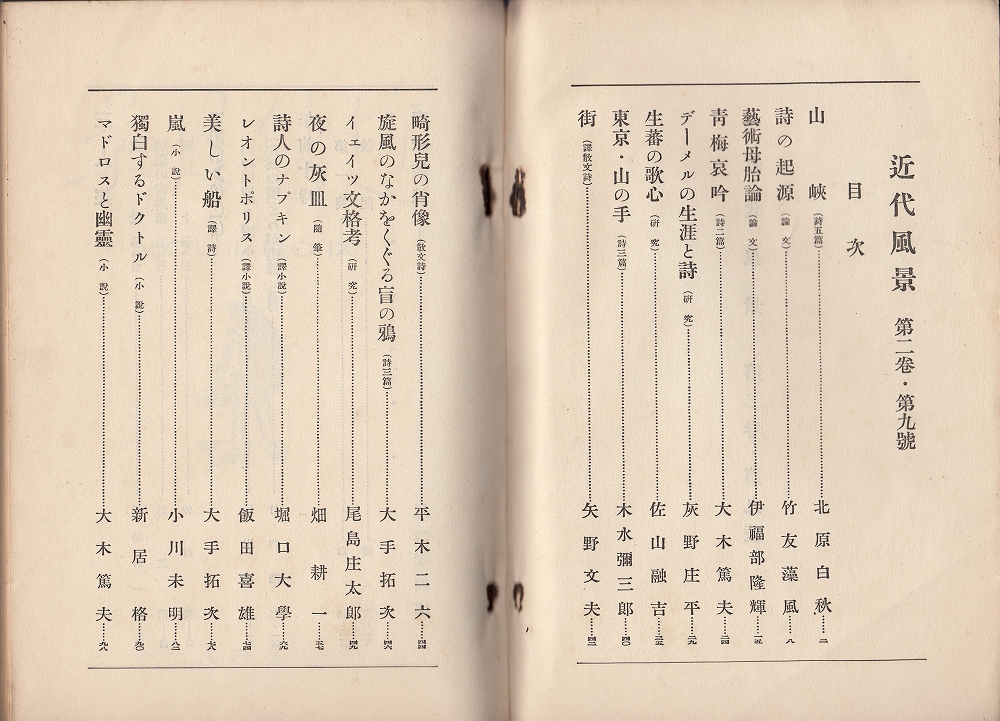 近代風景 第二卷・第九號
目次
山峽（詩五篇）……北原白秋……二
詩の起源（論文）……竹友藻風……八
藝術母胎論（論文）……伊福部隆輝……一五
靑梅哀吟（詩二篇）……大木篤夫……二四
デーメルの生涯と詩（硏究）……灰野庄平……二九
生蕃の歌心（硏究）……佐山融吉……三五
東京・山の手（詩三篇）……木水彌三郎……四〇
街（譯散文詩）……矢野文夫……四二
畸形兒の肖像（散文詩）……平木二六……四四
旋風のなかをくぐる盲の鴉（詩三篇）……大手拓次……四六
イェイツ文格考（硏究）……尾島庄太郎……四九
夜の灰皿（隨筆）……畑耕一……五七
詩人のナプキン（譯小說）……堀口大學……六九
レオントポリス（譯小說）……飯田喜雄……七四
美しい船（譯詩）……大手拓次……七八
嵐（小說）……小川未明……八二
獨白するドクトル（小說）……新居格……九〇
マドロスと幽靈（小說）……大木篤夫……九八